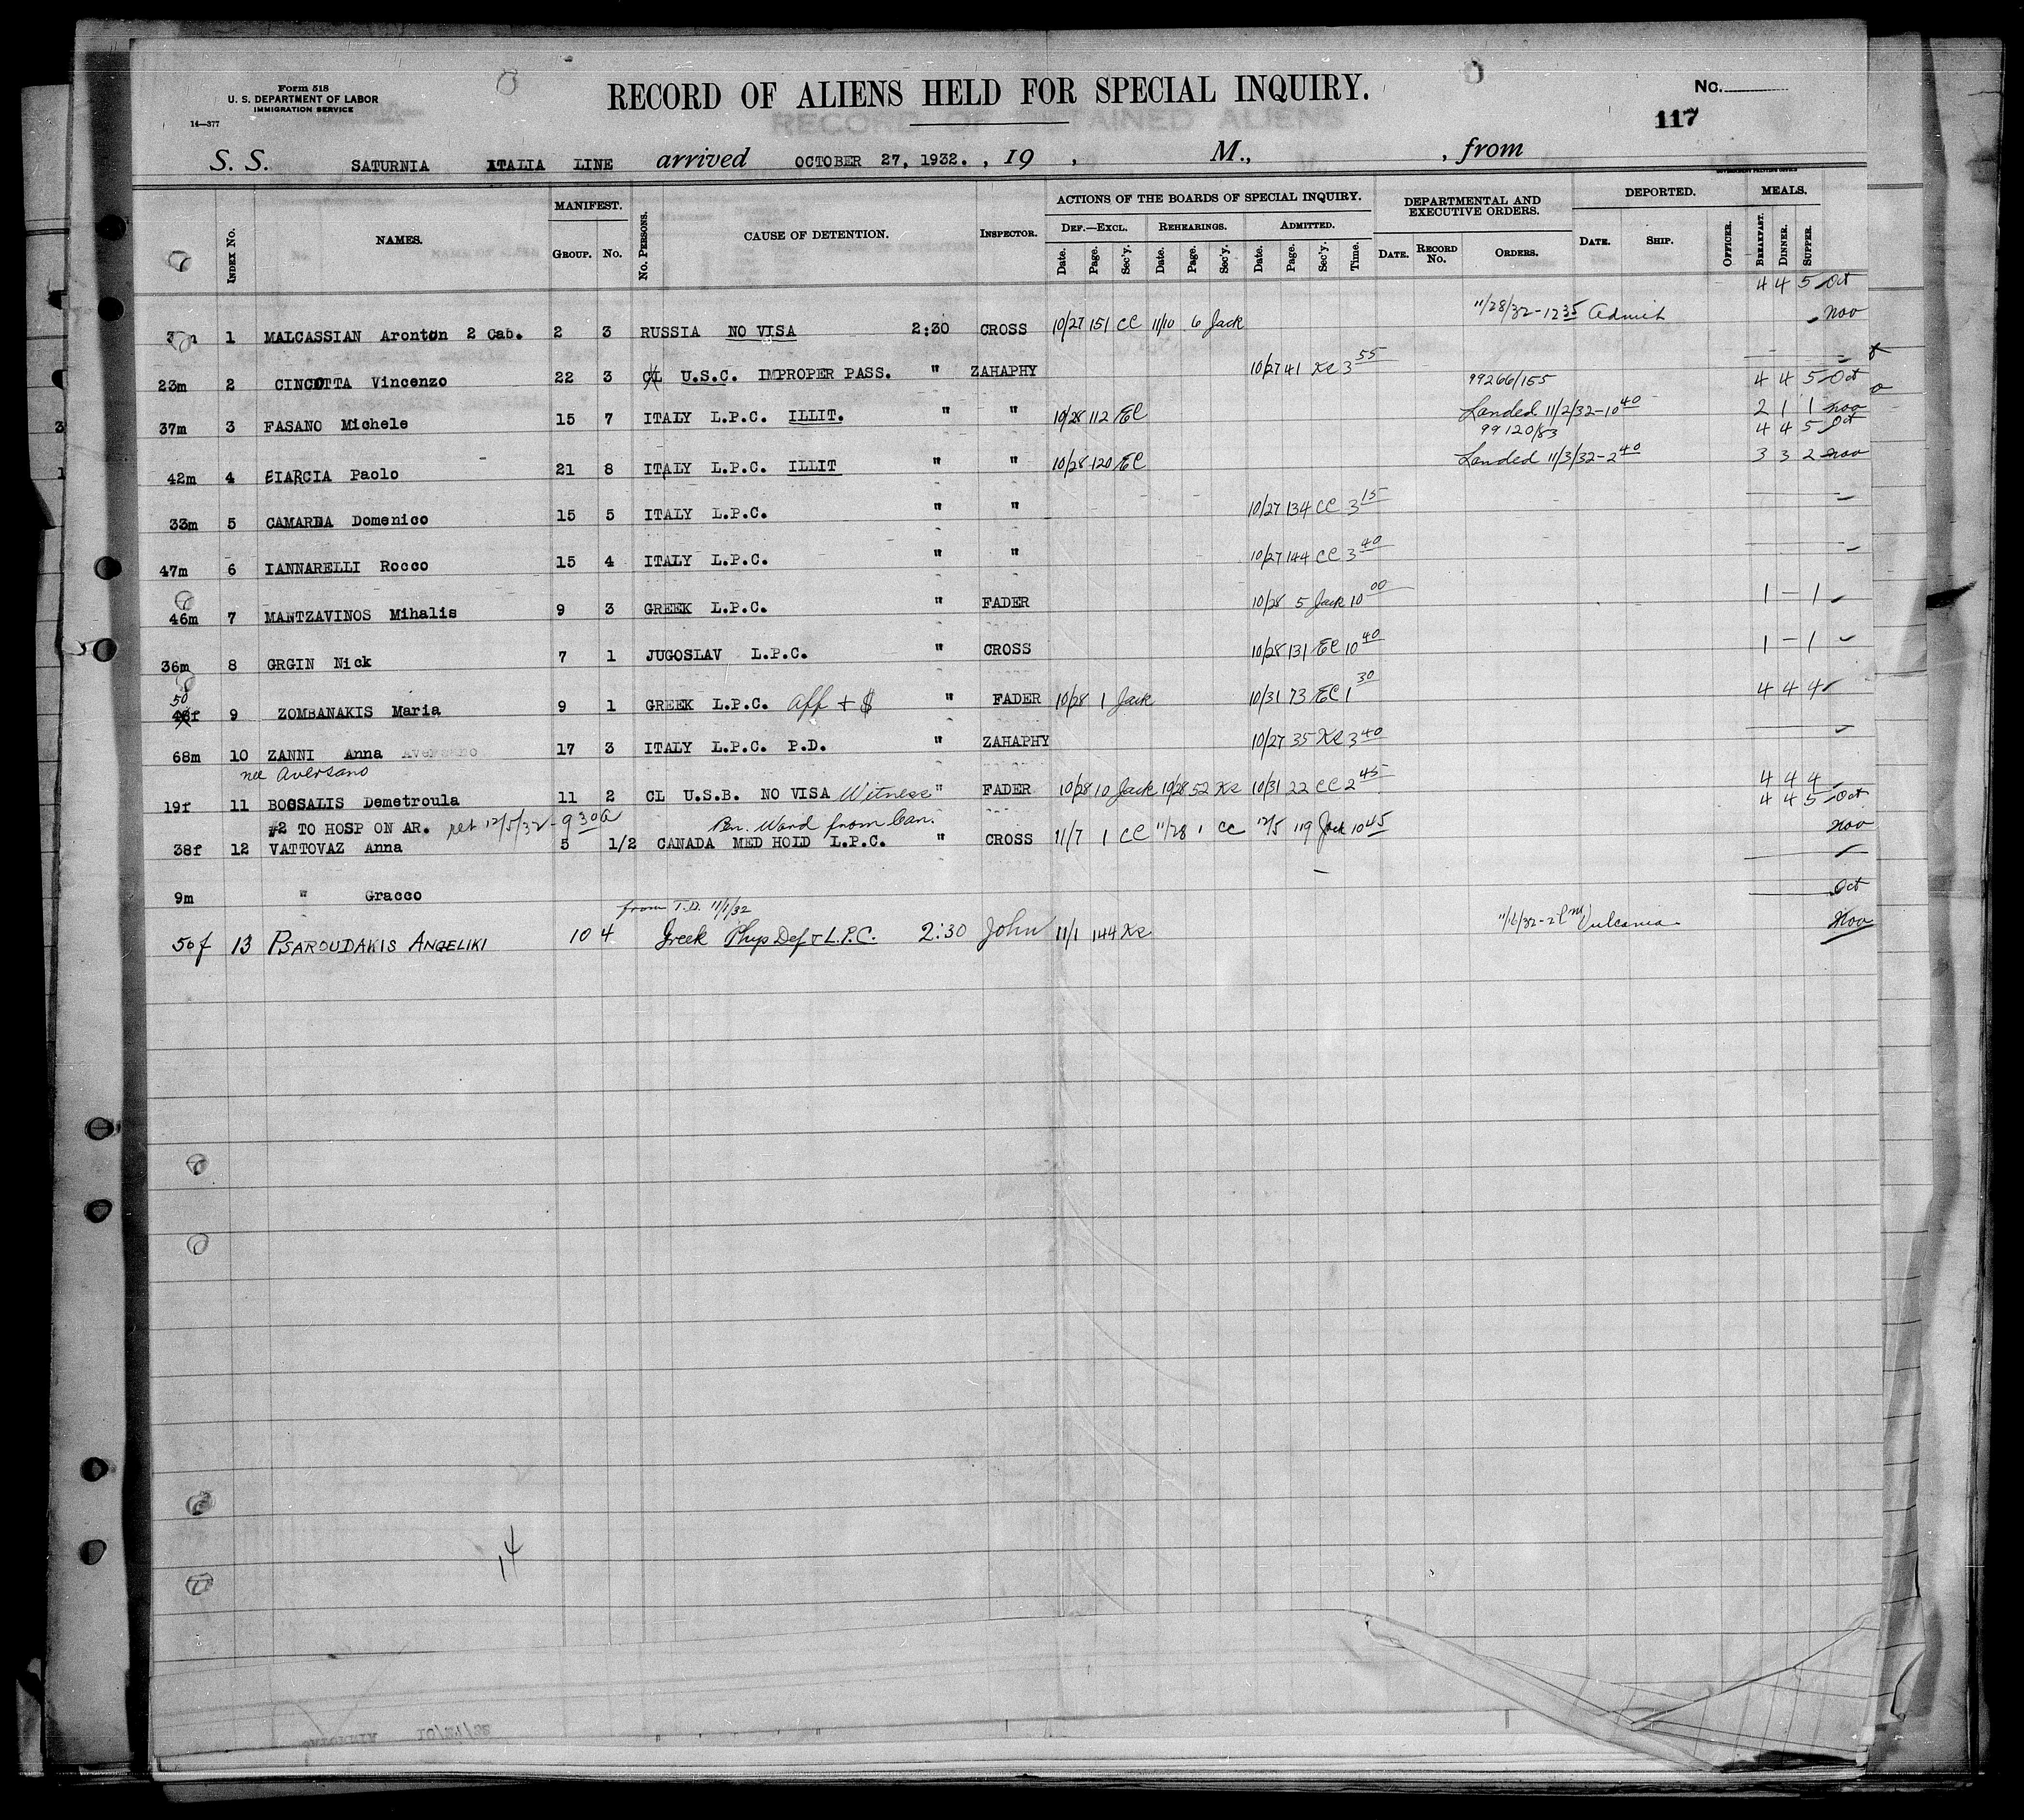 Form 518
U. S. DEPARTMENT OF LABOR
IMMIGRATION SERVICE
14—377
RECORD OF ALIENS HELD FOR SPECIAL INQUIRY.
RECORD OF DETAINED ALIENS
No.
117
S. S. SATURNIA ITALIA LINE arrived OCTOBER 27, 1932. , 19 , M., , from
GOVERNMENT PRINTING OFFICE
INDEX NO. NAMES. MANIFEST. GROUP. NO. NO. PERSONS. CAUSE OF DETENTION. INSPECTOR. ACTIONS OF THE BOARDS OF SPECIAL INQUIRY. DEPARTMENTAL AND EXECUTIVE ORDERS. DEPORTED. MEALS.
DEF.—EXCL. REHEARINGS. ADMITTED.
Date. Page. Sec'y. Date. Page. Sec'y. Date. Page. Sec'y. Time. DATE. RECORD No. ORDERS. DATE. SHIP. OFFICER. BREAKFAST. DINNER. SUPPER.
4 4 5 Oct
1 MALCASSIAN Aronton 2 Cab. 2 3 RUSSIA NO VISA 2:30 CROSS 10/27 151 CC 11/10 6 Jack 11/28/32-12 35 Admit Nov
23m 2 CINCOTTA Vincenzo 22 3 CL U.S.C. IMPROPER PASS. " ZAHAPHY 10/27 41 Ke 3 55
99266/155 4 4 5 Oct
37m 3 FASANO Michele 15 7 ITALY L.P.C. ILLIT. " " 10/28 112 EC Landed 11/2/32-10 40 2 1 1 Nov
99120/83 4 4 5 Oct
42m 4 Paolo 21 8 ITALY L.P.C. ILLIT " " 10/28 120 EC Landed 11/3/32-2 40 3 3 2 Nov
33m 5 CAMARDA Domenico 15 5 ITALY L.P.C. " " 10/27 134 CC 3 15
47m 6 IANNARELLI Rocco 15 4 ITALY L.P.C. " " 10/27 144 CC 3 40
46m 7 MANTZAVINOS Mihalis 9 3 GREEK L.P.C. " FADER 10/28 5 Jack 10 00 1 - 1
36m 8 GRGIN Nick 7 1 JUGOSLAV L.P.C. " CROSS 10/28 131 EC 10 40 1 - 1
50
48f 9 ZOMBANAKIS Maria 9 1 GREEK L.P.C. Aff + $ " FADER 10/28 1 Jack 10/31 73 EC 1 30 4 4 4
68m 10 ZANNI Anna Aversano 17 3 ITALY L.P.C. P.D. " ZAHAPHY 10/27 35 Ke 3 40
nee Aversano
19f 11 BOSSALIS Demetroula 11 2 CL U.S.B. NO VISA Witness " FADER 10/28 10 Jack 10/28 52 Ke 10/31 22 CC 2 45 4 4 4
4 4 5 Oct
#2 TO HOSP ON AR. ret 12/5/32-9 30a Ward from Can.
38f 12 VATTOVAZ Anna 5 1/2 CANADA MED HOLD L.P.C. " CROSS 11/7 1 CC 11/28 1 CC 12/5 119 Jack 10 45 Nov
9m " Gracco Oct
from T.D. 11/1/32
50f 13 PSAROUDAKIS ANGELIKI 10 4 Greek Phys Def + L.P.C. 2:30 John 11/1 144 Ke 2 PM Vulcania Nov
14